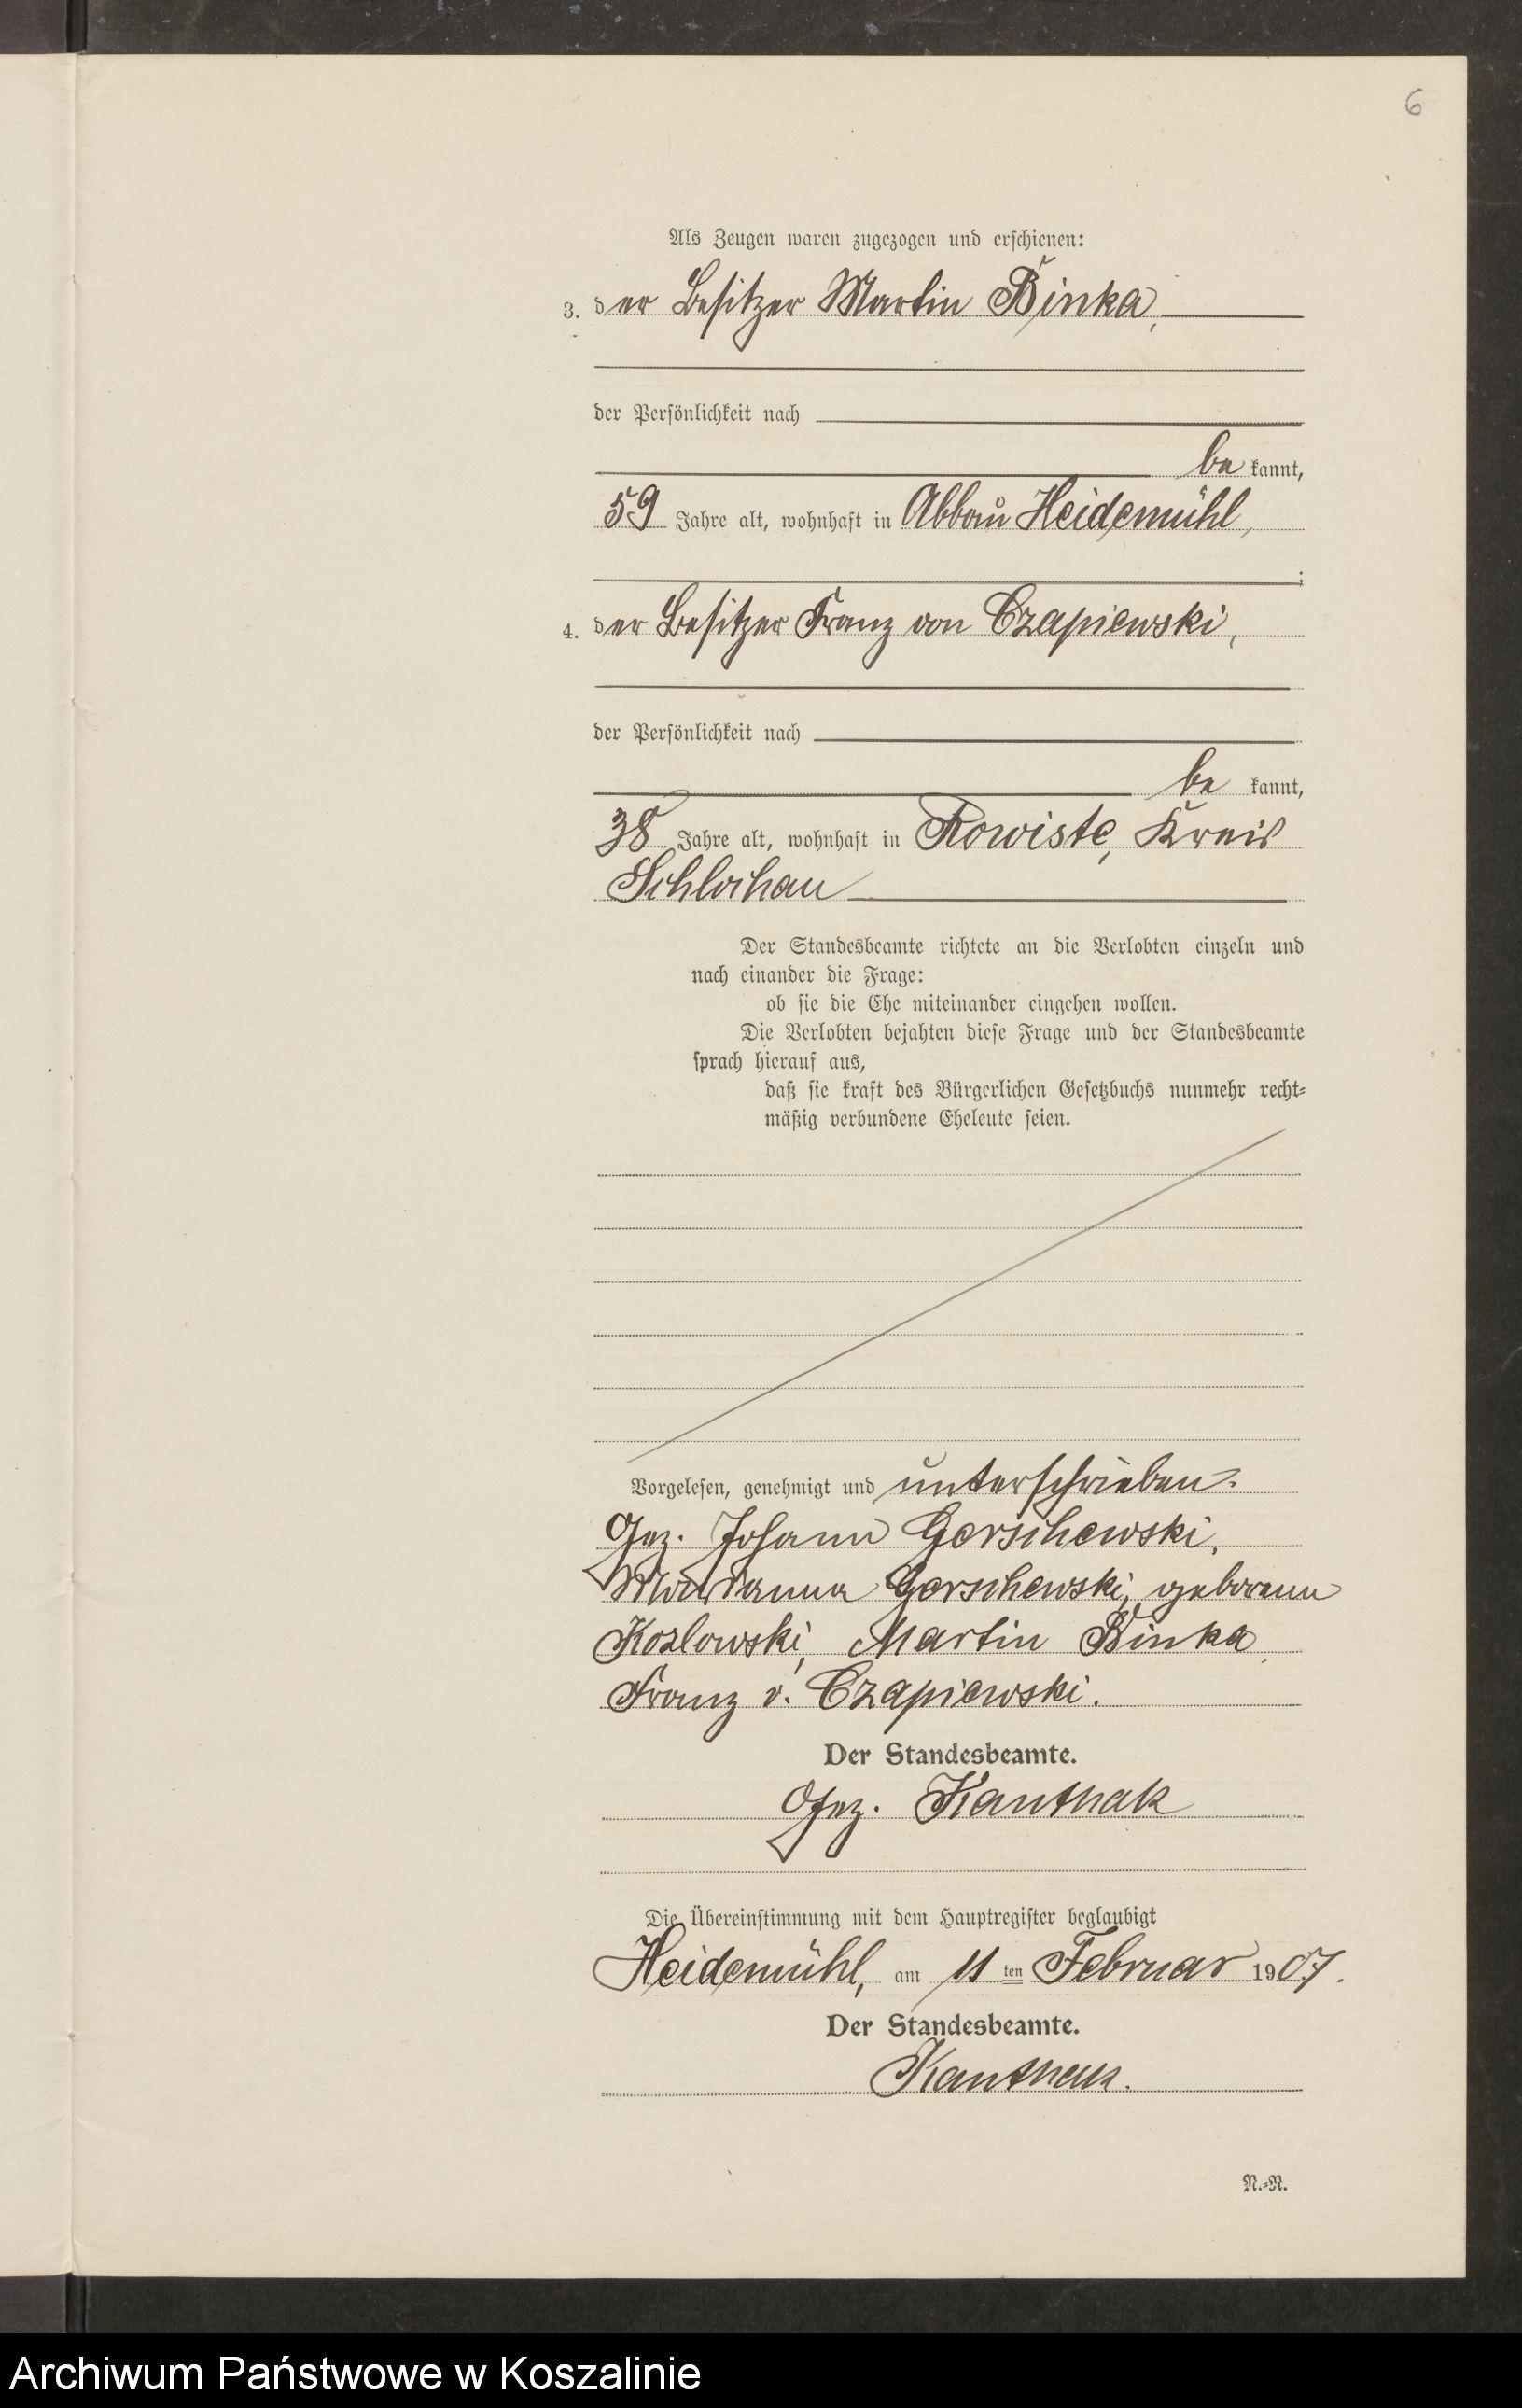 6
Als Zeugen waren zugezogen und erschienen:
3. der Besitzer Martin Binka,
der Persönlichkeit nach
be kannt,
59 Jahre alt, wohnhaft in Abbau Heidemühl,
;
4. der Besitzer Franz von Czapiewski,
der Persönlichkeit nach
be kannt,
38 Jahre alt, wohnhaft in Rowiste, Kreis
Schlochau
Der Standesbeamte richtete an die Verlobten einzeln und
nach einander die Frage:
ob sie die Ehe miteinander eingehen wollen.
Die Verlobten bejahten diese Frage und der Standesbeamte
sprach hierauf aus,
daß sie kraft des Bürgerlichen Gesetzbuchs nunmehr recht-
mäßig verbundene Eheleute seien.
Vorgelesen, genehmigt und unterschrieben.
Gez. Johann Gerschewski,
Marianna Gerschewski, geborene
Kozlowski, Martin Binka
Franz v. Czapiewski.
Der Standesbeamte.
Gez. Kanthak
Die Übereinstimmung mit dem Hauptregister beglaubigt
Heidemühl, am 11 ten Februar 1907.
Der Standesbeamte.
Kanthak.
N.-R.
Archiwum Państwowe w Koszalinie